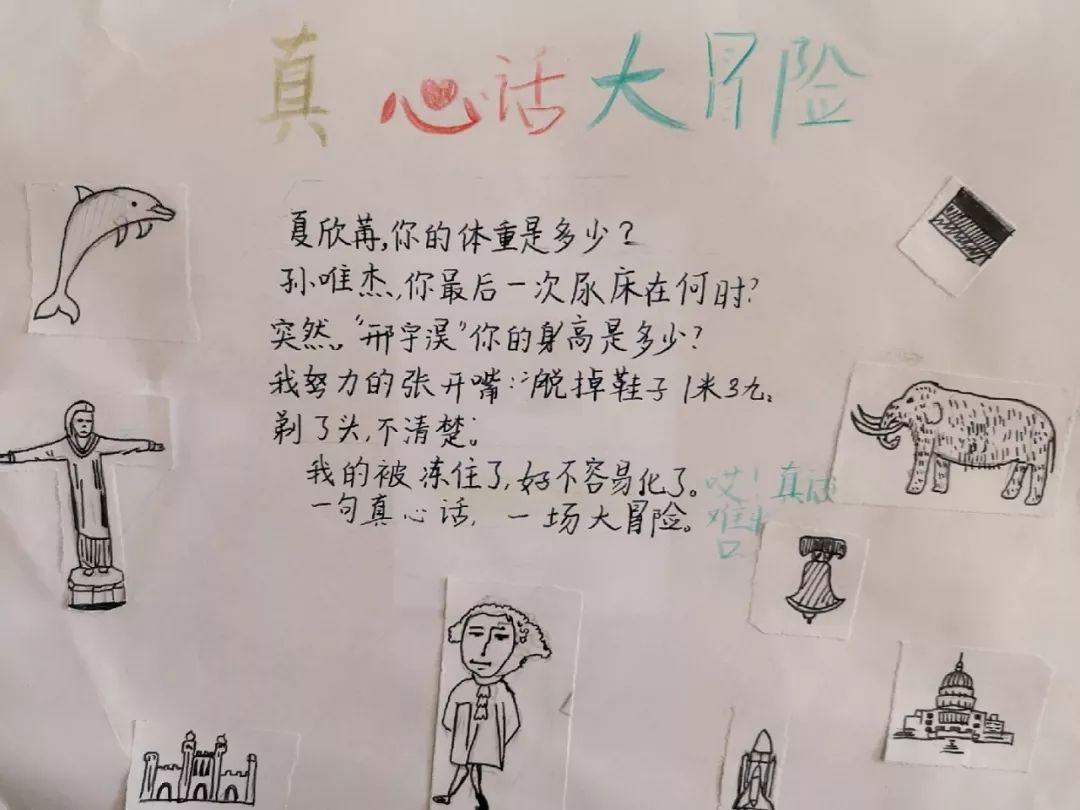 真心话大冒险
夏欣苒,你的体重是多少?
孙唯杰,你最后一次尿床在何时?
突然,“邢宇淏”你的身高是多少?
我努力的张开嘴:“脱掉鞋子1米3九。
剃了头,不清楚。
我的被冻住了,好不容易化了。
一句真心话,一场大冒险。
哎!真话
难
口